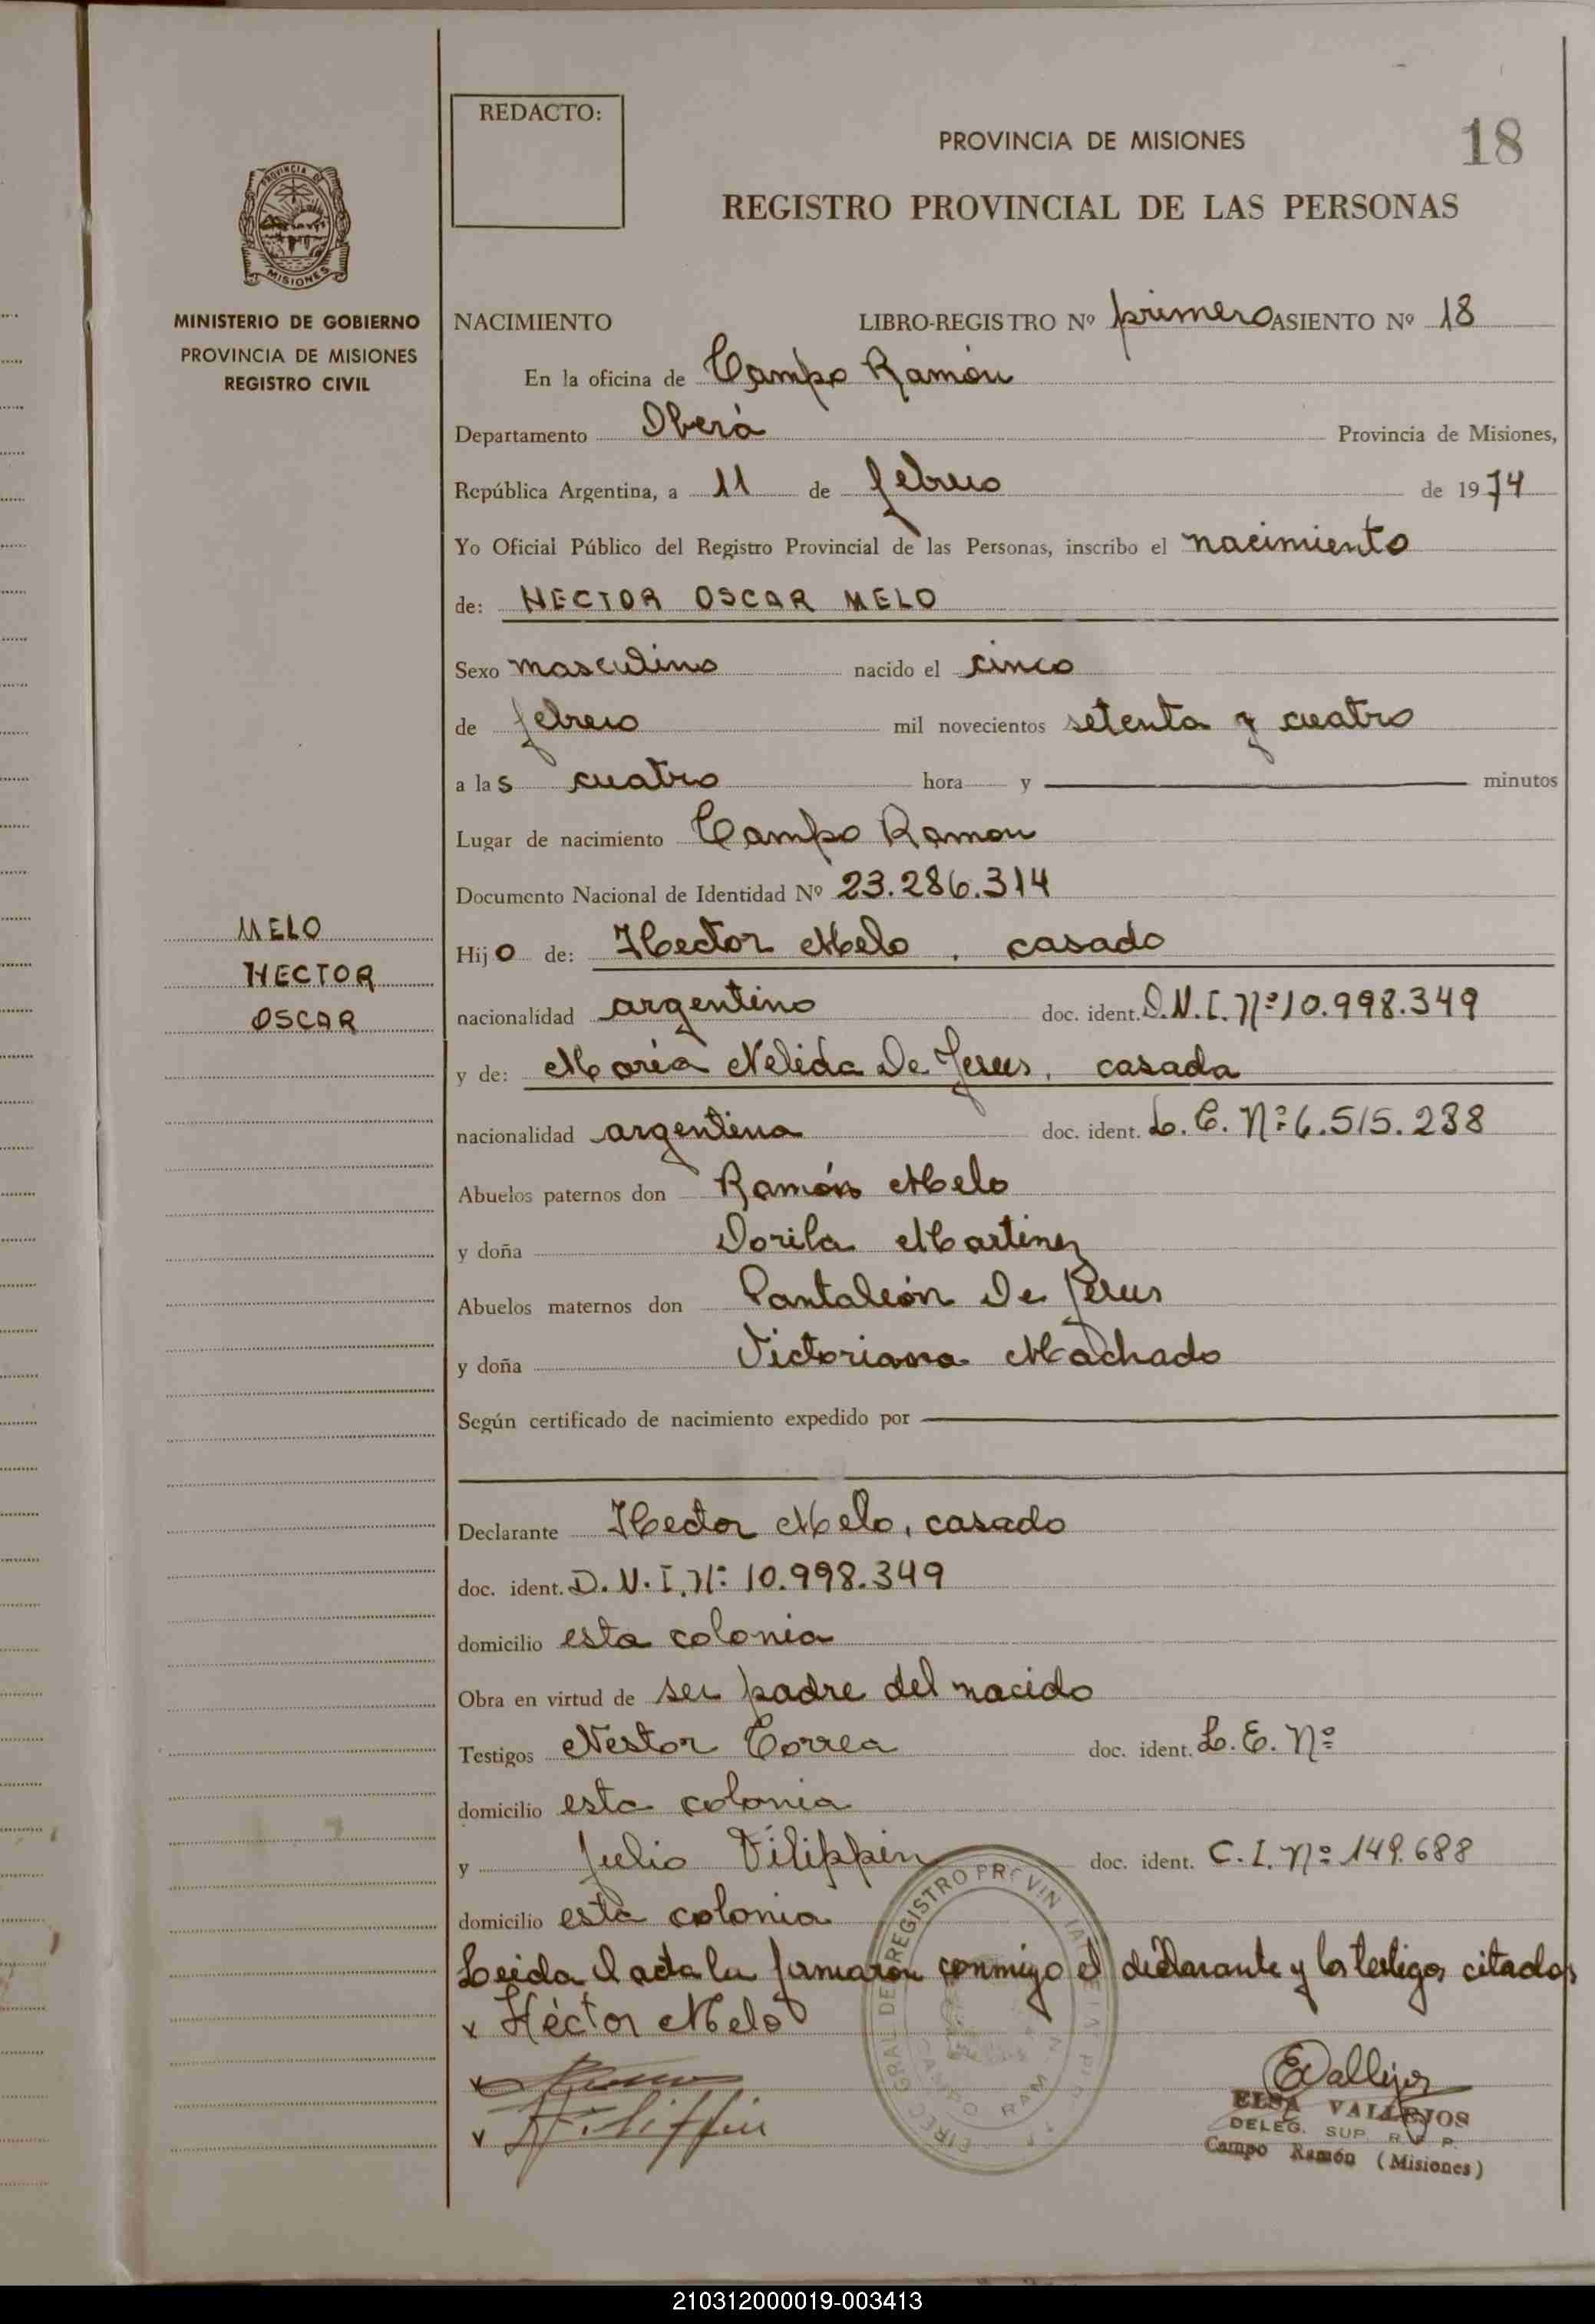 REDACTO:
PROVINCIA DE MISIONES
18
REGISTRO PROVINCIAL DE LAS PERSONAS
PROVINCIA DE
MISIONES
MINISTERIO DE GOBIERNO
PROVINCIA DE MISIONES
REGISTRO CIVIL
NACIMIENTO LIBRO-REGISTRO Nº primero ASIENTO Nº 18
En la oficina de Campo Ramón
Departamento Oberá Provincia de Misiones,
República Argentina, a 11 de febrero de 1974
Yo Oficial Público del Registro Provincial de las Personas, inscribo el nacimiento
de: HECTOR OSCAR MELO
Sexo masculino nacido el cinco
de febrero mil novecientos setenta y cuatro
a las cuatro hora y minutos
Lugar de nacimiento Campo Ramon
Documento Nacional de Identidad Nº 23.286.314
MELO
HECTOR
OSCAR
Hijo de: Hector Melo, casado
nacionalidad argentino doc. ident. D.N.I. Nº 10.998.349
y de: María Nelida De Jesus, casada
nacionalidad argentina doc. ident. L.C. Nº 6.515.238
Abuelos paternos don Ramón Melo
y doña Dorila Martinez
Abuelos maternos don Pantaleón De Jesus
y doña Victoriana Machado
Según certificado de nacimiento expedido por
Declarante Hector Melo, casado
doc. ident. D.N.I. Nº 10.998.349
domicilio esta colonia
Obra en virtud de ser padre del nacido
Testigos Nestor Correa doc. ident. L.E. Nº
domicilio esta colonia
y Julio Filippin doc. ident. C.I. Nº 149.688
domicilio esta colonia
Leida el acta la firmaron conmigo el declarante y los testigos citados
x Héctor Melo
EVallejos
ELSA VALLEJOS
DELEG. SUP. R. P. P.
Campo Ramón (Misiones)
210312000019-003413